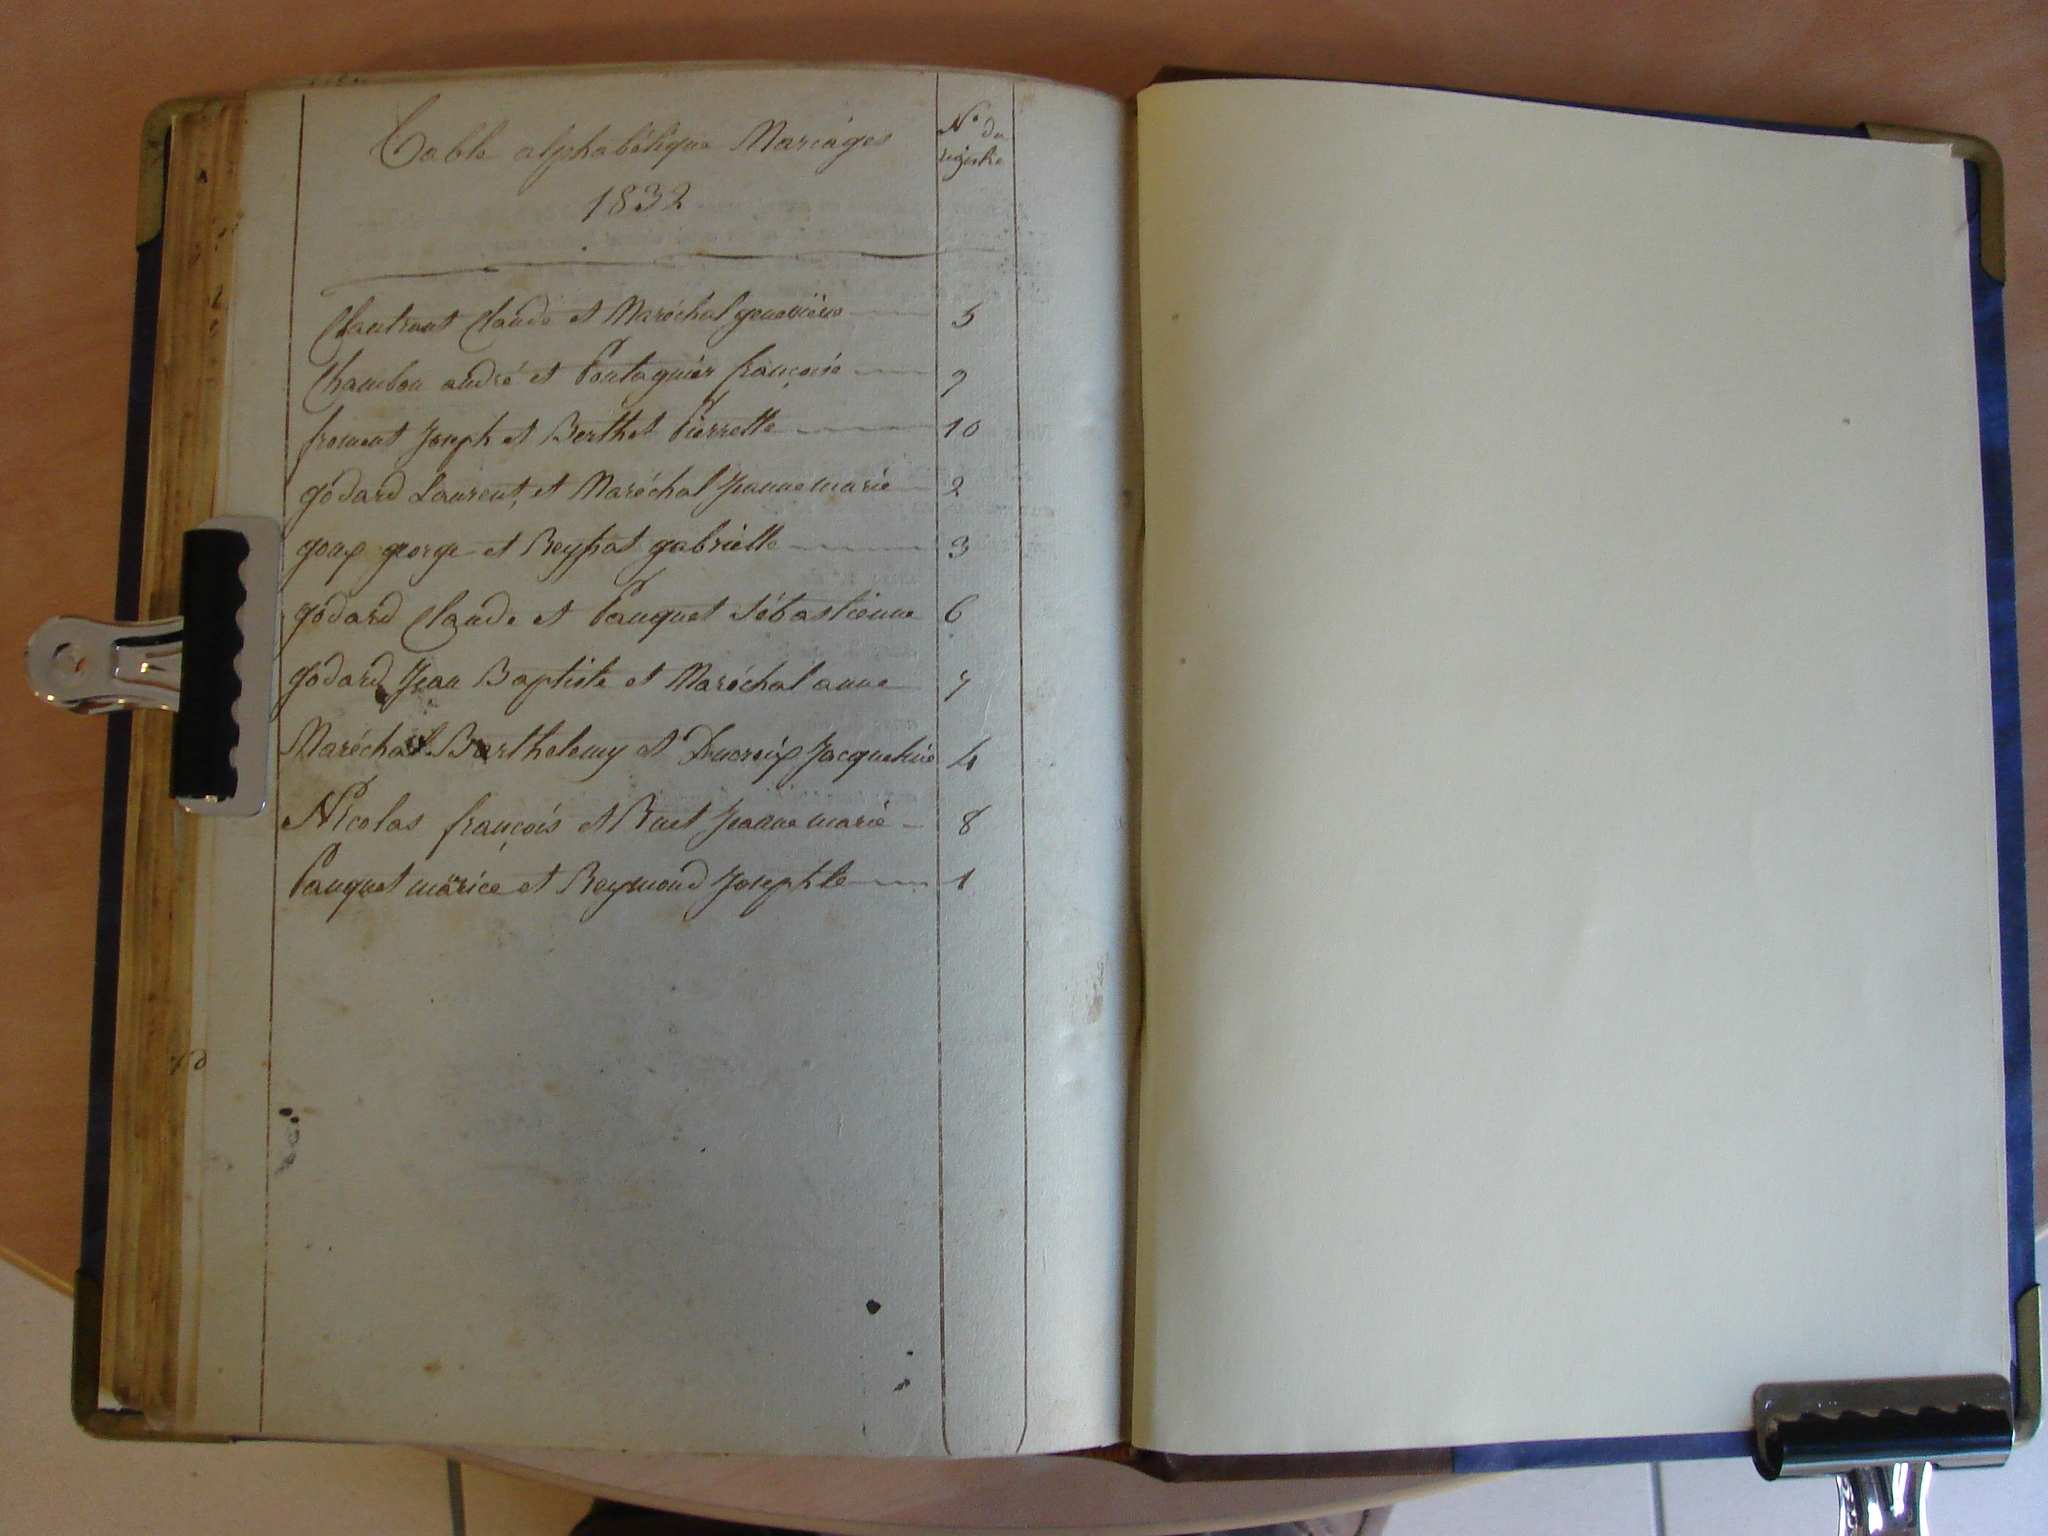 Table alphabétique Mariages
1832
N.o du
registre
Chautrant Claude et Maréchal genevieve 5
Chambon andré et Pontagnier françoise 9
froment Joseph et Berthet Pierrette 10
godard Laurent, et Maréchal Jeanne marie 2
goux george et Reyssat gabrielle 3
godard Claude et Pauquet Sébastienne 6
godard Jean Baptiste et Maréchal anne 7
Maréchal Barthelemy et Ducroix Jacqueline 4
Nicolas françois et Buet Jeanne marie 8
Pauquet marice et Reymond Josephte 1